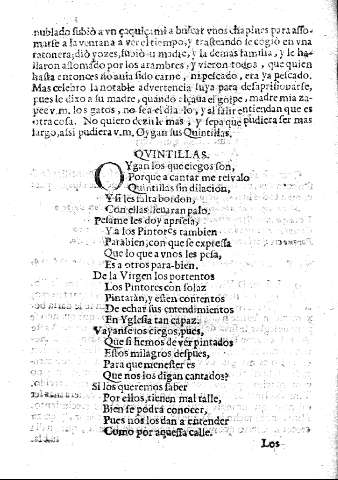 nublado subiò a vn çaquiçami a buscar vnos chapines para asso-
marse a la ventana a ver el tiempo, y trasteando se cogiò en vna
ratonera; diò vozes, subiò su madre, y la demas familia, y le ha-
llaron assomado por los arambres, y vieron todos, que quien
hasta entonces no auia sido carne, ni pescado, era ya pescado.
Mas celebro la notable advertencia suya para desaprisionarse,
pues le dixo a su madre, quando alçaua el golpe, madre mia za-
pee v.m. los gatos, no sea el diablo, y al salir entiendan que es
otra cosa. No quiero dezirle mas, y sepa que pudiera ser mas
largo, assi pudiera v.m. Oygan sus Quintillas.
QVINTILLAS.
OYgan los que ciegos son,
Porque a cantar me reivalo
Quintillas sin dilacion,
Y si les falta borden,
Con ellas lleuaran palo.
Pesame les doy apriesa,
Y a los Pintores tambien
Parabien, con que se expressa
Que lo que a vnos les pesa,
Es a otros para-bien.
De la Virgen los portentos
Los Pintores con solaz
Pintaràn, y estèn contentos
De echar sus entendimientos
En Yglesia tan capaz.
Vayanse los ciegos, pues,
Que si hemos de ver pintados
Estos milagros despues,
Para que menester es
Que nos los digan cantados?
Si los queremos saber
Por ellos, tienen mal talle,
Bien se podrà conocer,
Pues nos los dan a entender
Como por aquessa calle.
Los